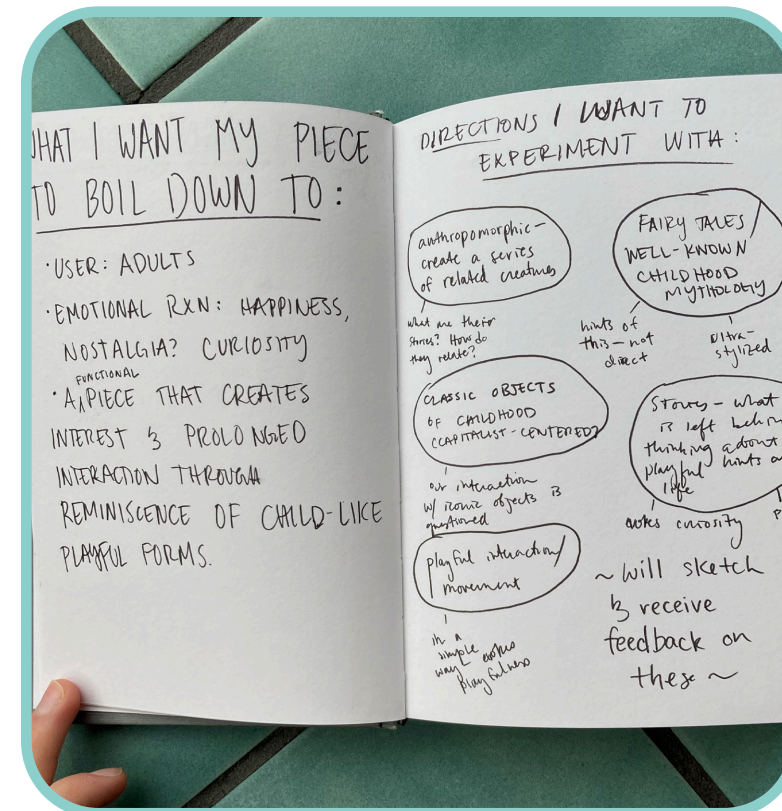 WHAT I WANT MY PIECE
TO BOIL DOWN TO:
· USER: ADULTS
· EMOTIONAL RXN: HAPPINESS,
NOSTALGIA? CURIOSITY
FUNCTIONAL
· A ^ PIECE THAT CREATES
INTEREST & PROLONGED
INTERACTION THROUGH
REMINISCENCE OF CHILD-LIKE
PLAYFUL FORMS.
DIRECTIONS I WANT TO
EXPERIMENT WITH:
anthropomorphic-
create a series
of related creatures
what are their
stories? How do
they relate?
FAIRY TALES/
WELL-KNOWN
CHILDHOOD
MYTHOLOGY
hints of
this - not
direct
ultra-
stylized
CLASSIC OBJECTS
OF CHILDHOOD
(CAPITALIST-CENTERED?
our interaction
w/ iconic objects is
questioned
Stories - what
is left
thinking about
playful hints
life
curiosity
playful interaction/
movement
in a
simple
way
playfulness
~ will sketch
& receive
feedback on
these ~